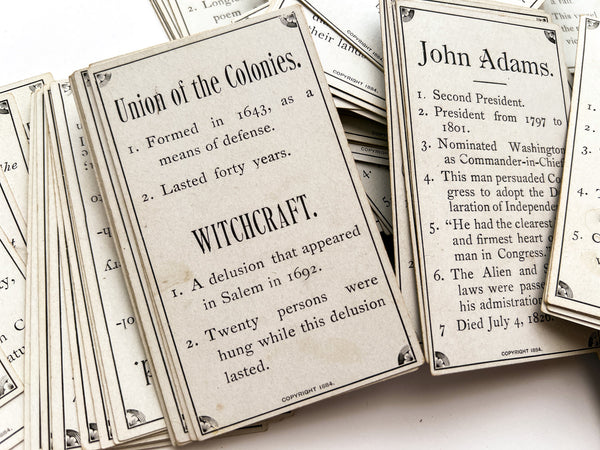 Union of the Colonies.
1. Formed in 1643, as a
means of defense.
2. Lasted forty years.
WITCHCRAFT.
1. A delusion that appeared
in Salem in 1692.
2. Twenty persons were
hung while this delusion
lasted.
COPYRIGHT 1884.
John Adams.
1. Second President.
2. President from 1797 to
1801.
3. Nominated Washington
as Commander-in-Chief
4. This man persuaded Co
gress to adopt the D
laration of Independe
5. "He had the clearest
and firmest heart o
man in Congress."
6. The Alien and S
laws were passe
his admistration
7 Died July 4, 1826
COPYRIGHT 1884.
2. Long
poem
their land
COPYRIGHT 1884.
The